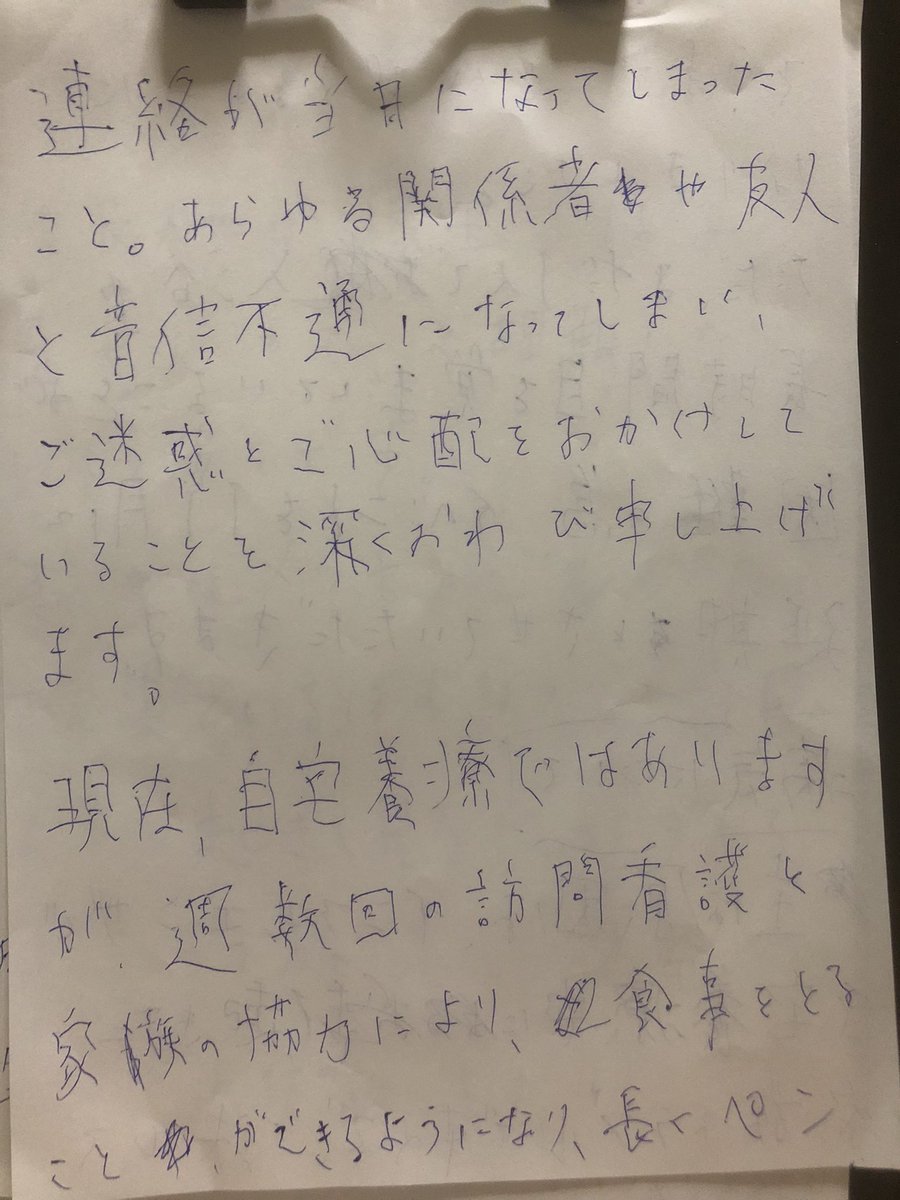 連絡が当日になってしまった
こと。あらゆる関係者や友人
と音信不通になってしまい、
ご迷惑とご心配をおかけして
いることを深くおわび申し上げ
ます。
現在、自宅養療ではあります
が、週数回の訪問看護と
家族の協力により、食事をとる
ことができるようになり、長くペン